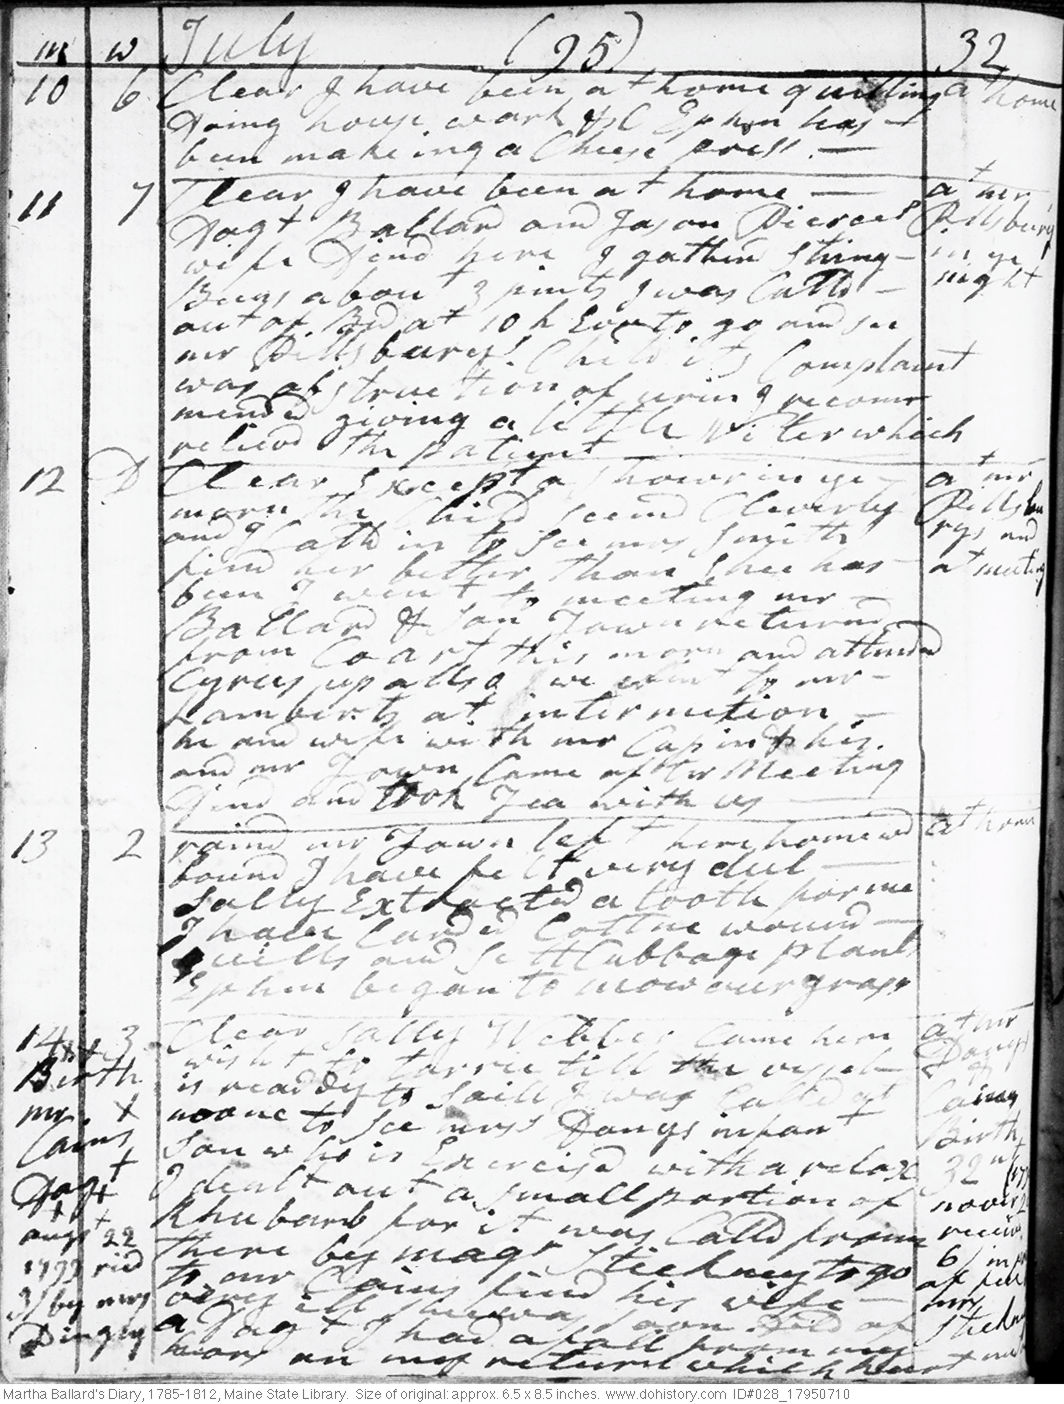 m w July (25) 32
10 6 Clear I have been at home quilting at home
Doing house work &C Ephm has
been makeing a Cheese press.
11 7 Clear I have been at home at mr
Dagt Ballard and Jason Pierces Pillsbury
wife Dind here I gatherd String in ye
Beens about 3 pints I was Calld night
out of Bed at 10 h Evn to go and see
mr Pillsburys Child its Complaint
was obstruction of urin I recom
mended giving a little Niter which
relievd the patient
12 D Clear Except a Shower in ye at mr
morn the Child seemd Cleverly Pillsbu
and I Calld in to see mrs Smith rys and
find her better than Shee has at meeting
been I went to meeting mr
Ballard & Son Town returned
from Coart this morn and attended
Cyrus up allso we went to mr
Lamberts at intermition
he and wife with mr
and mr Town Came after Meeting
Dind and took Tea with us
13 2 raind mr Town left here homewd at home
bound I have felt very dul
Sally Extracted a tooth for me
I have Carded Cotton wound
quills and sett Cabbage plants
Ephm began to mow our grass
14 3 Clear Sally Webber Came here at mr
wisht to tarrie till the vessel Danys
Birth is readdy to Saill I was Calld at
mr noone to See mrss Danys infant Cainay
Cains son who is Exercisd with a relax Birth
Dagt I dealt out a small portion of 32nd
Rhubarb for it was Calld from
augt 22 there by magr Stickney to go receivd
1799 rcd to mr Cains find his wife 6/
3/ by mrs very ill Soon Dld of mrs
Dingley a Dagt I had a fall from my
hors on my return which hurt me
Martha Ballard's Diary, 1785-1812, Maine State Library. Size of original: approx. 6.5 x 8.5 inches. www.dohistory.com ID#028_17950710